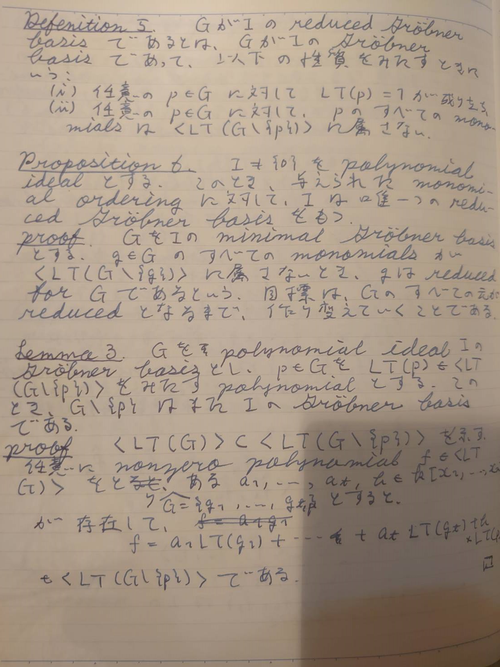 Defenition 5. GがIの reduced Gröbner
basis であるとは、GがIの Gröbner
basis であって、以下の性質をみたすときに
いう:
(i) 任意の p∈G に対して LT(p) = 1 が成り立つ.
(ii) 任意の p∈G に対して, pのすべての mono-
mials は <LT(G\{p})> に属さない.
Proposition 6. I≠{0} を polynomial
ideal とする. このとき, 与えられた monomi-
al ordering に対して, I は唯一つの redu-
ced Gröbner basis をもつ.
proof. GをIの minimal Gröbner basis
とする. g∈G のすべての monomials が
<LT(G\{g})> に属さないとき, gは reduced
for G であるという. 目標は, Gのすべての元が
reduced となるまで, 作り変えていくことである.
Lemma 3. Gを polynomial ideal Iの
Gröbner basis とし, p∈Gを LT(p)∈<LT
(G\{p})> をみたす polynomial とする. この
とき, G\{p} はまた Iの Gröbner basis
である.
proof <LT(G)> ⊂ <LT(G\{p})> を示す.
任意に nonzero polynomial f∈<LT
(G)> をとると, ある a₁, ..., at, h ∈ k[x₁, ...
G={g₁, ..., gt, p} とすると.
が存在して,
f = a₁LT(g₁) + ... + at LT(gt) + h
×LT(p)
∈ <LT(G\{p})> である.
□